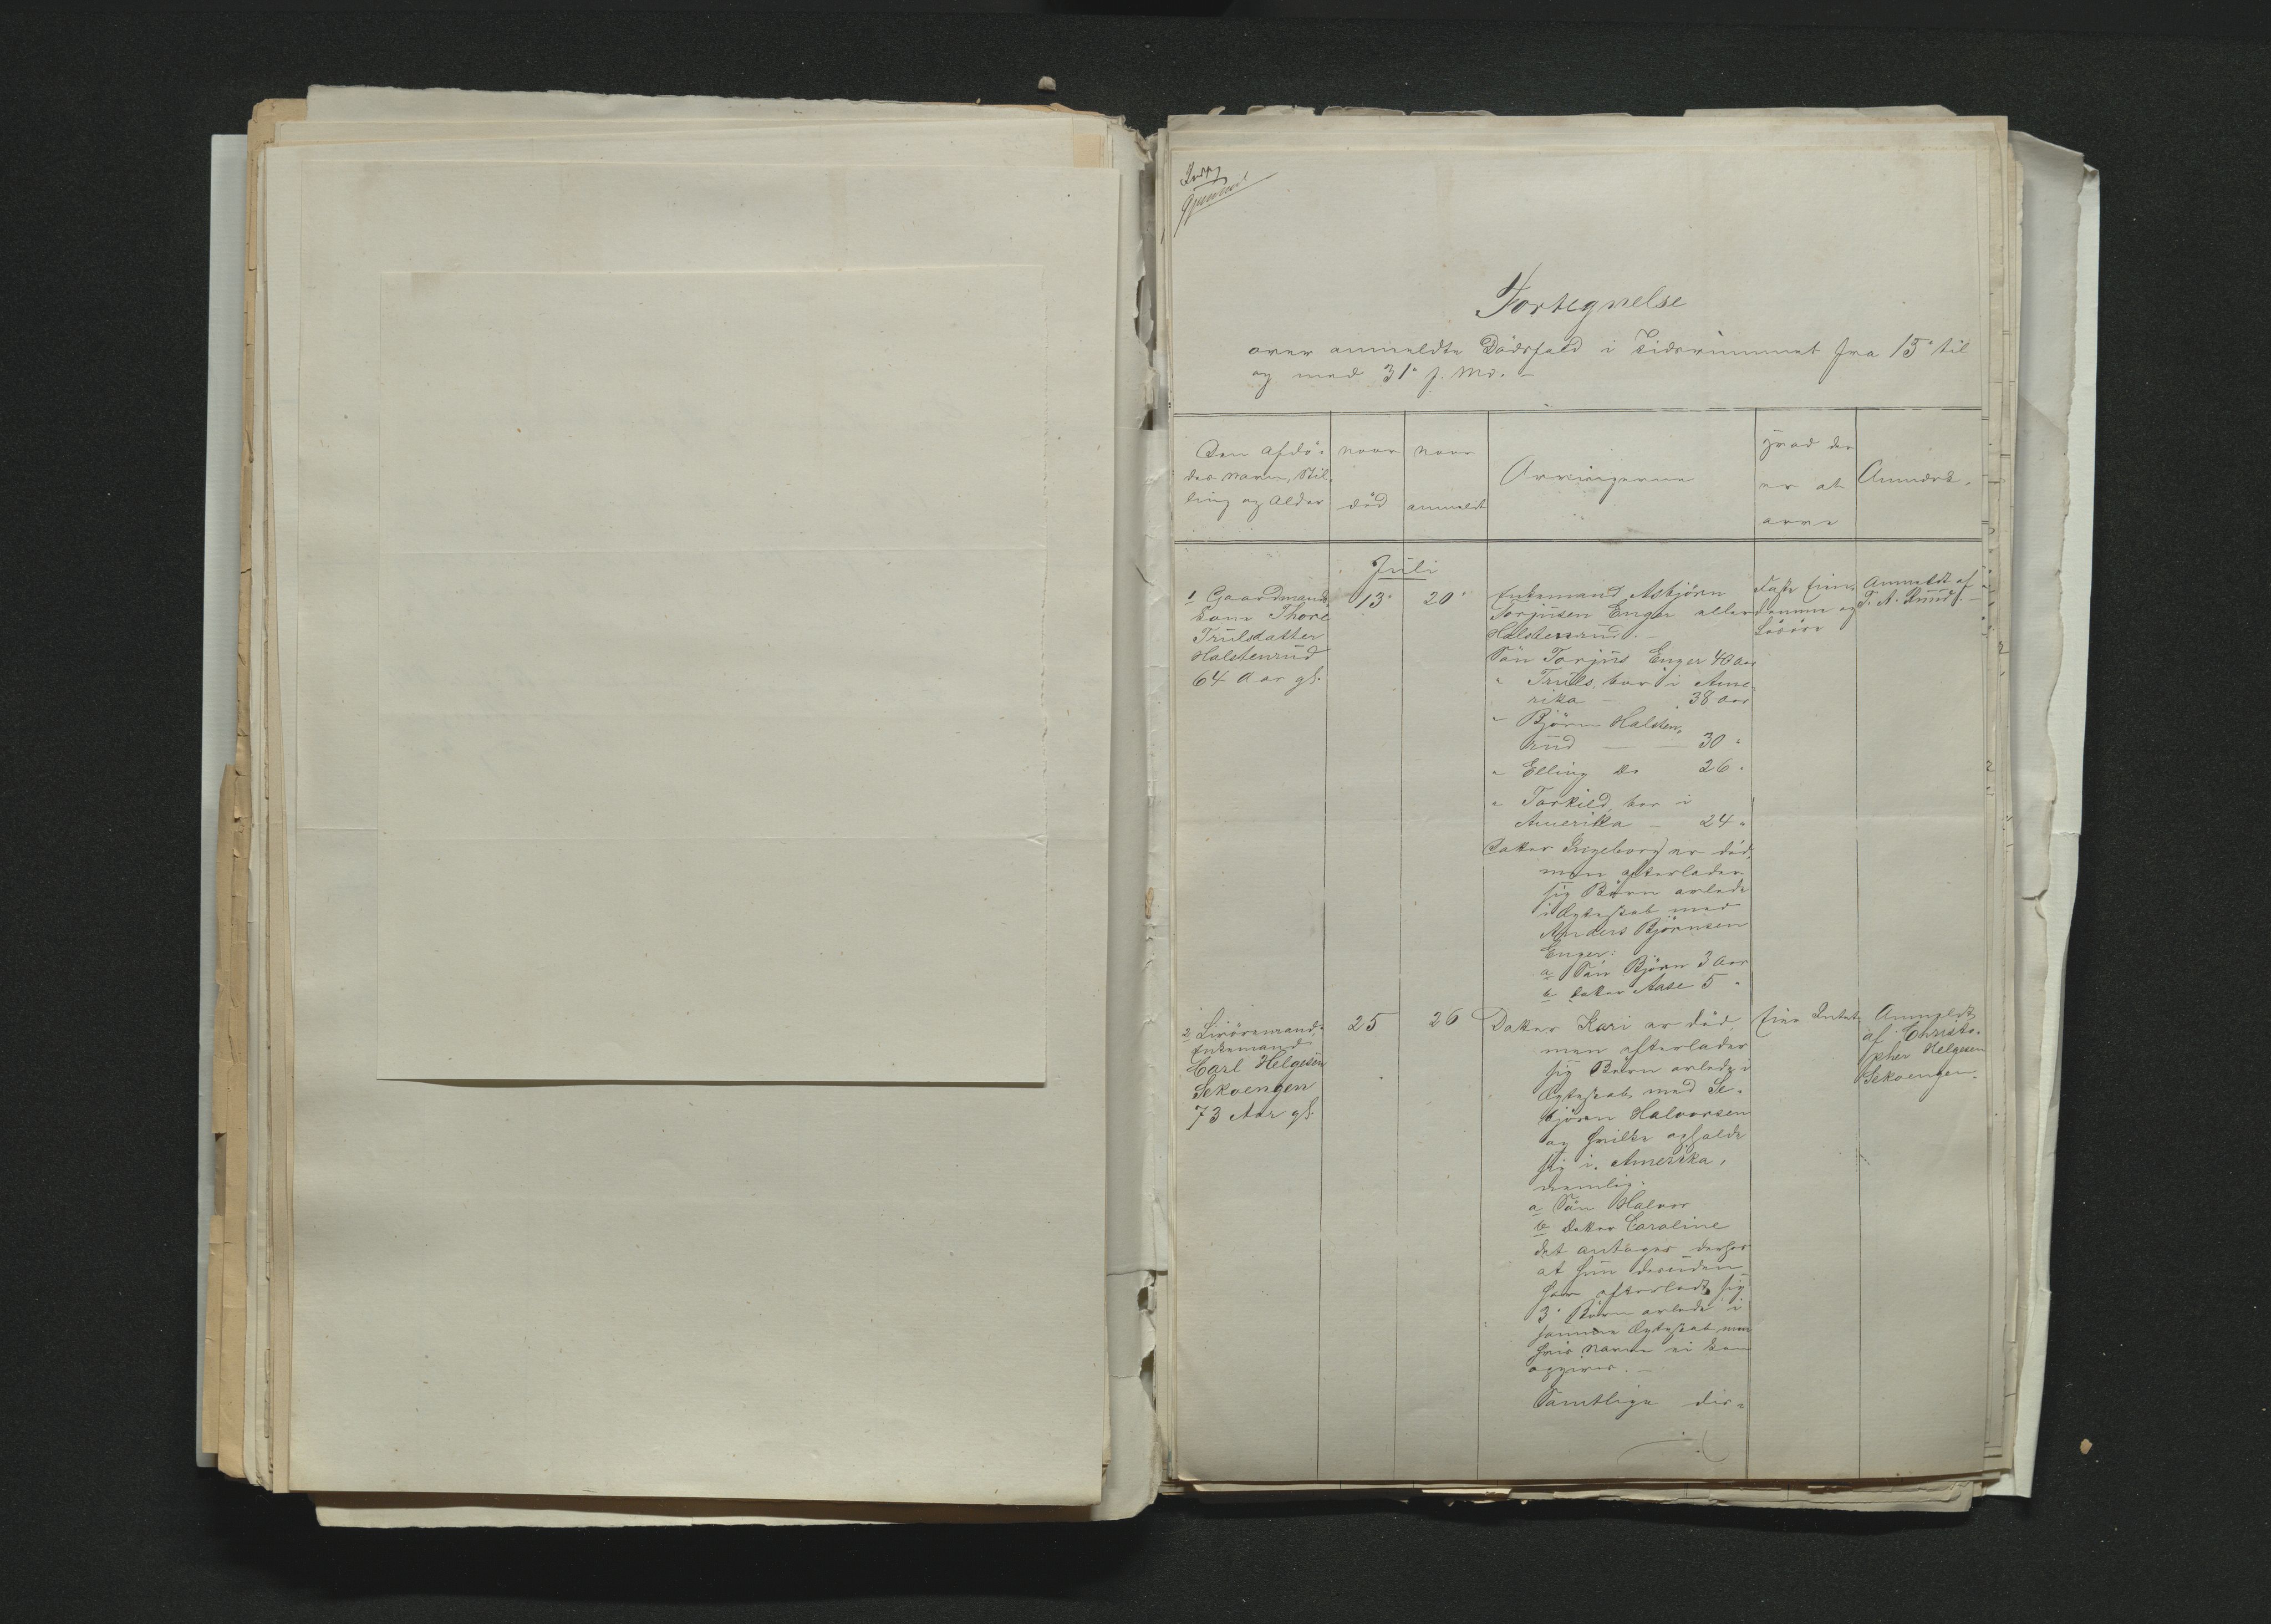 Fortegnelse
over anmeldte Dödsfald i Tidsrummet fra 15' til
og med 31' f. Md. –
Den afdö-
des Navn, Stil-
ling og Alder
naar
död
naar
anmeldt
Arvingerne
Hvad der
er at
arve
Anmærk.
Juli
1 Gaardmands
kone Thore
Trulsdatter
Halstenrud
64 Aar gl.
13'
20'
Enkemand Asbjörn
Torjusen Enger eller
Halstenrud. –
Sön Torjus Enger 40 Aar
" Truls, bor i Ame-
rika – 38 Aar
" Björn Halsten-
rud — — 30 "
" Elling Do 26 "
" Torkild, bor i
Amerika – 24 "
Datter Ingeborg er död,
men efterlader
sig Börn avlede
i Ægteskab med
Anders Björnsen
Enger:
a Sön Björn 3 Aar
b Datter Aase 5 "
Fast Eien-
domme og
Lösöre
Anmeldt af
T. A. Ruud. –
2
Enkemand
Carl Helgesen
Sekvengen
73 Aar gl.
25
26
Datter Kari er död,
men efterlader
sig Börn avlede i
Ægteskab med Se-
björn Halvorsen
og hvilke opholde
sig i Amerika,
nemlig:
a Sön Halvor
b Datter Caroline
det antages derhos
at hun desuden
har efterladt sig
3' Börn avlede i
samme Ægteskab, men
hvis Navne ei kan
opgives. –
Samtlige dis-
Intet
Anmeldt
af Christo-
pher Helgesen
Sekvengen.